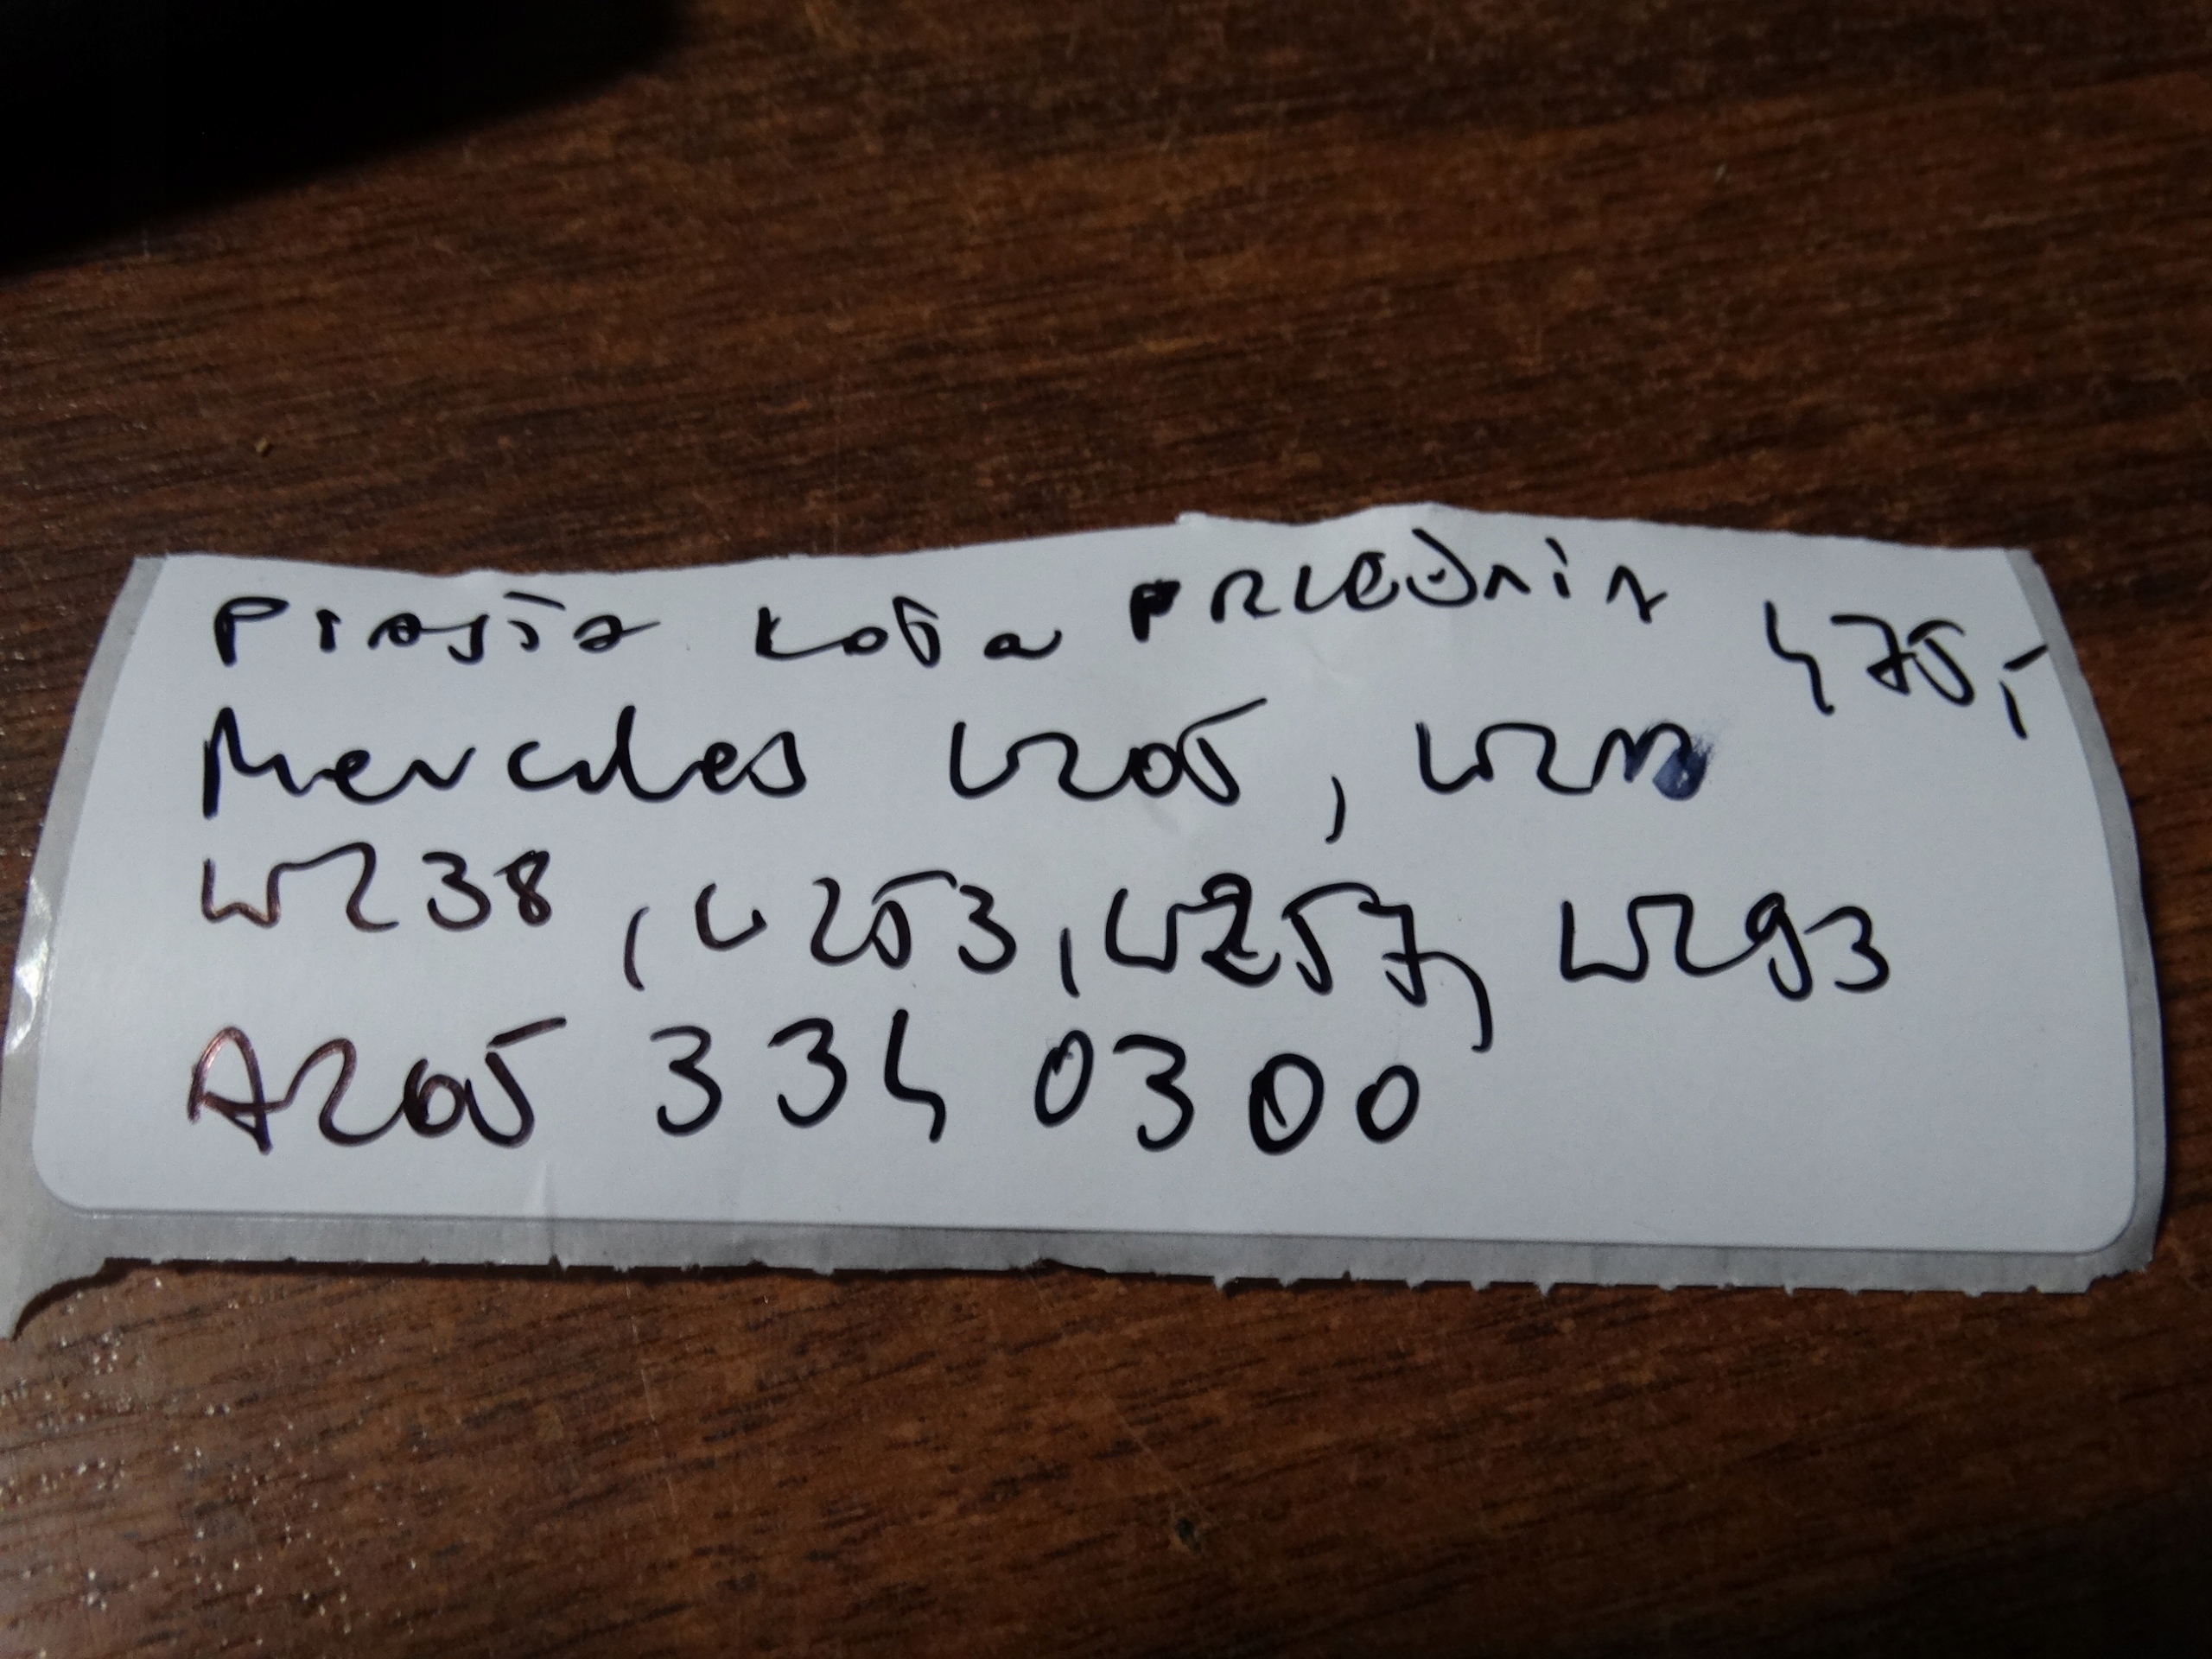 Piasta koła PRZEDNIA 475,-
Mercedes W205, W213
W238, W253, W257, W293
A205 334 0300